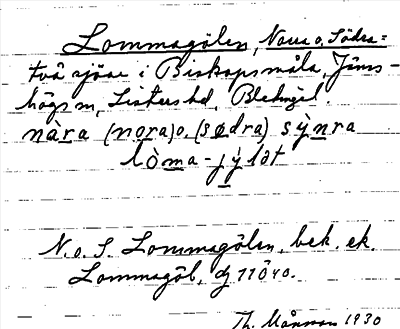 Lommagölen, Norra o. Södra =
två sjöar i Biskopsmåla, Jäms-
högs sn, Listers hd, Blek. l.
nàra (nora) o. (sødra) sỳnra
lòma-jỳlǝt
N. o. S. Lommagölen, bek. ek.
Lommagöl, dj 11040.
Th. Månsson 1930